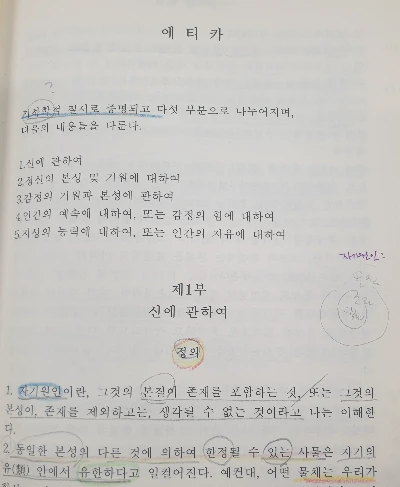 에 티 카
?
기하학적 질서로 증명되고 다섯 부분으로 나누어지며,
다음의 내용들을 다룬다.
1.신에 관하여
2.정신의 본성 및 기원에 대하여
3.감정의 기원과 본성에 관하여
4.인간의 예속에 대하여, 또는 감정의 힘에 대하여
5.지성의 능력에 대하여, 또는 인간의 자유에 대하여
자기원인:
제1부
신에 관하여
정의
1. 자기원인이란, 그것의 본질이 존재를 포함하는 것, 또는 그것의
본성이, 존재를 제외하고는, 생각될 수 없는 것이라고 나는 이해한
다.
2. 동일한 본성의 다른 것에 의하여 한정될 수 있는 사물은 자기의
유(類) 안에서 유한하다고 일컬어진다. 예컨대, 어떤 물체는 우리가